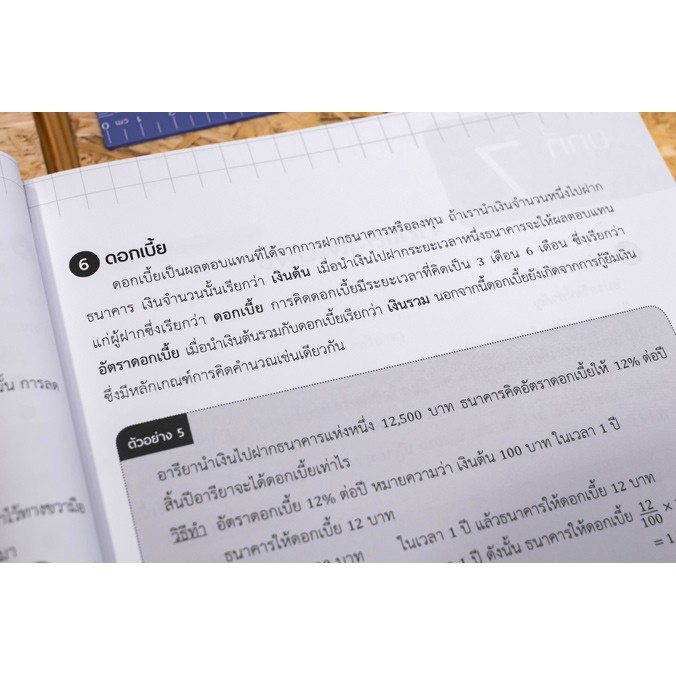 6 ดอกเบี้ย
ดอกเบี้ยเป็นผลตอบแทนที่ได้จากการฝากธนาคารหรือลงทุน ถ้าเรานำเงินจำนวนหนึ่งไปฝาก
ธนาคาร เงินจำนวนนั้นเรียกว่า เงินต้น เมื่อนำเงินไปฝากระยะเวลาหนึ่งธนาคารจะให้ผลตอบแทน
แก่ผู้ฝากซึ่งเรียกว่า ดอกเบี้ย การคิดดอกเบี้ยมีระยะเวลาที่คิดเป็น 3 เดือน 6 เดือน ซึ่งเรียกว่า
อัตราดอกเบี้ย เมื่อนำเงินต้นรวมกับดอกเบี้ยเรียกว่า เงินรวม นอกจากนี้ดอกเบี้ยยังเกิดจากการกู้ยืมเงิน
ซึ่งมีหลักเกณฑ์การคิดคำนวณเช่นเดียวกัน
ตัวอย่าง 5
อารียานำเงินไปฝากธนาคารแห่งหนึ่ง 12,500 บาท ธนาคารคิดอัตราดอกเบี้ยให้ 12% ต่อปี
สิ้นปีอารียาจะได้ดอกเบี้ยเท่าไร
วิธีทำ อัตราดอกเบี้ย 12% ต่อปี หมายความว่า เงินต้น 100 บาท ในเวลา 1 ปี
ธนาคารให้ดอกเบี้ย 12 บาท
บาท ในเวลา 1 ปี แล้วธนาคารให้ดอกเบี้ย 12 บาท
1 ปี ดังนั้น ธนาคารให้ดอกเบี้ย 12/100 ×
= 1
การลด